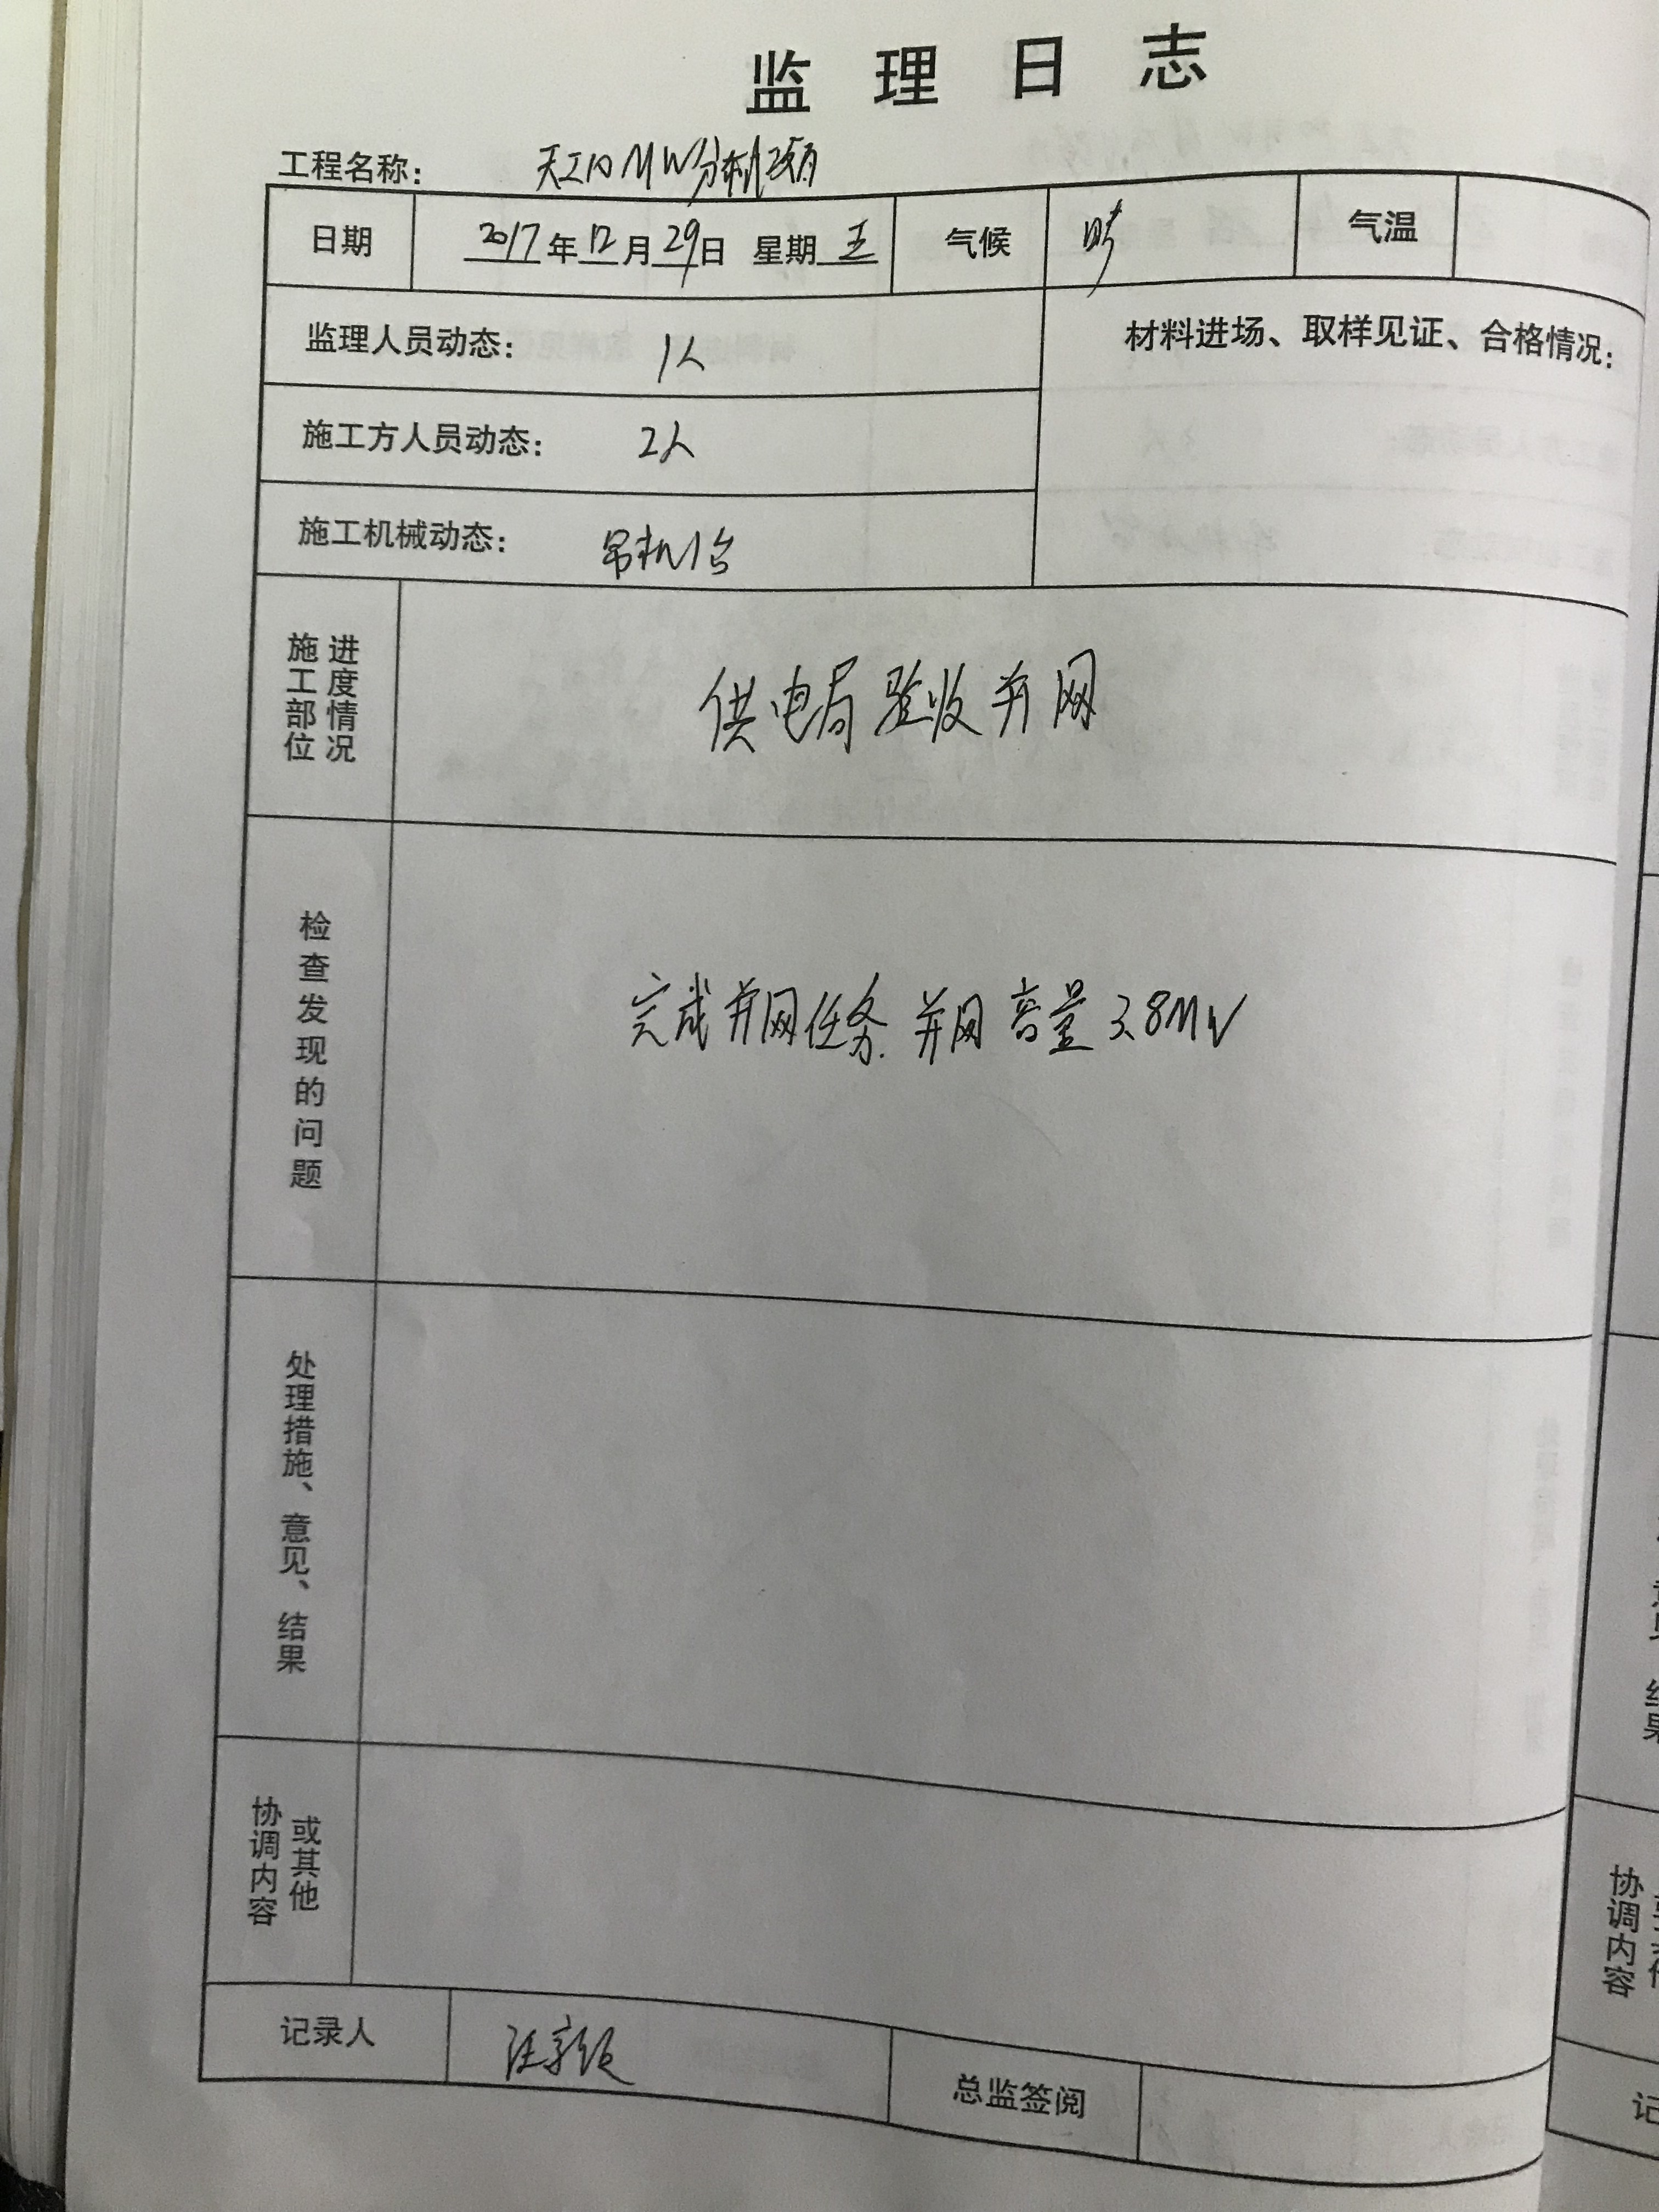 监理日志
工程名称: 天工10MW分布式项目
日期 2017年12月29日 星期五 气候 晴 气温
监理人员动态: 1人 材料进场、取样见证、合格情况:
施工方人员动态: 2人
施工机械动态: 吊机1台
施工部位 进度情况 供电局验收并网
检查发现的问题 完成并网任务. 并网容量3.8MW
处理措施、意见、结果
协调内容 或其他
记录人 总监签阅
协调内容